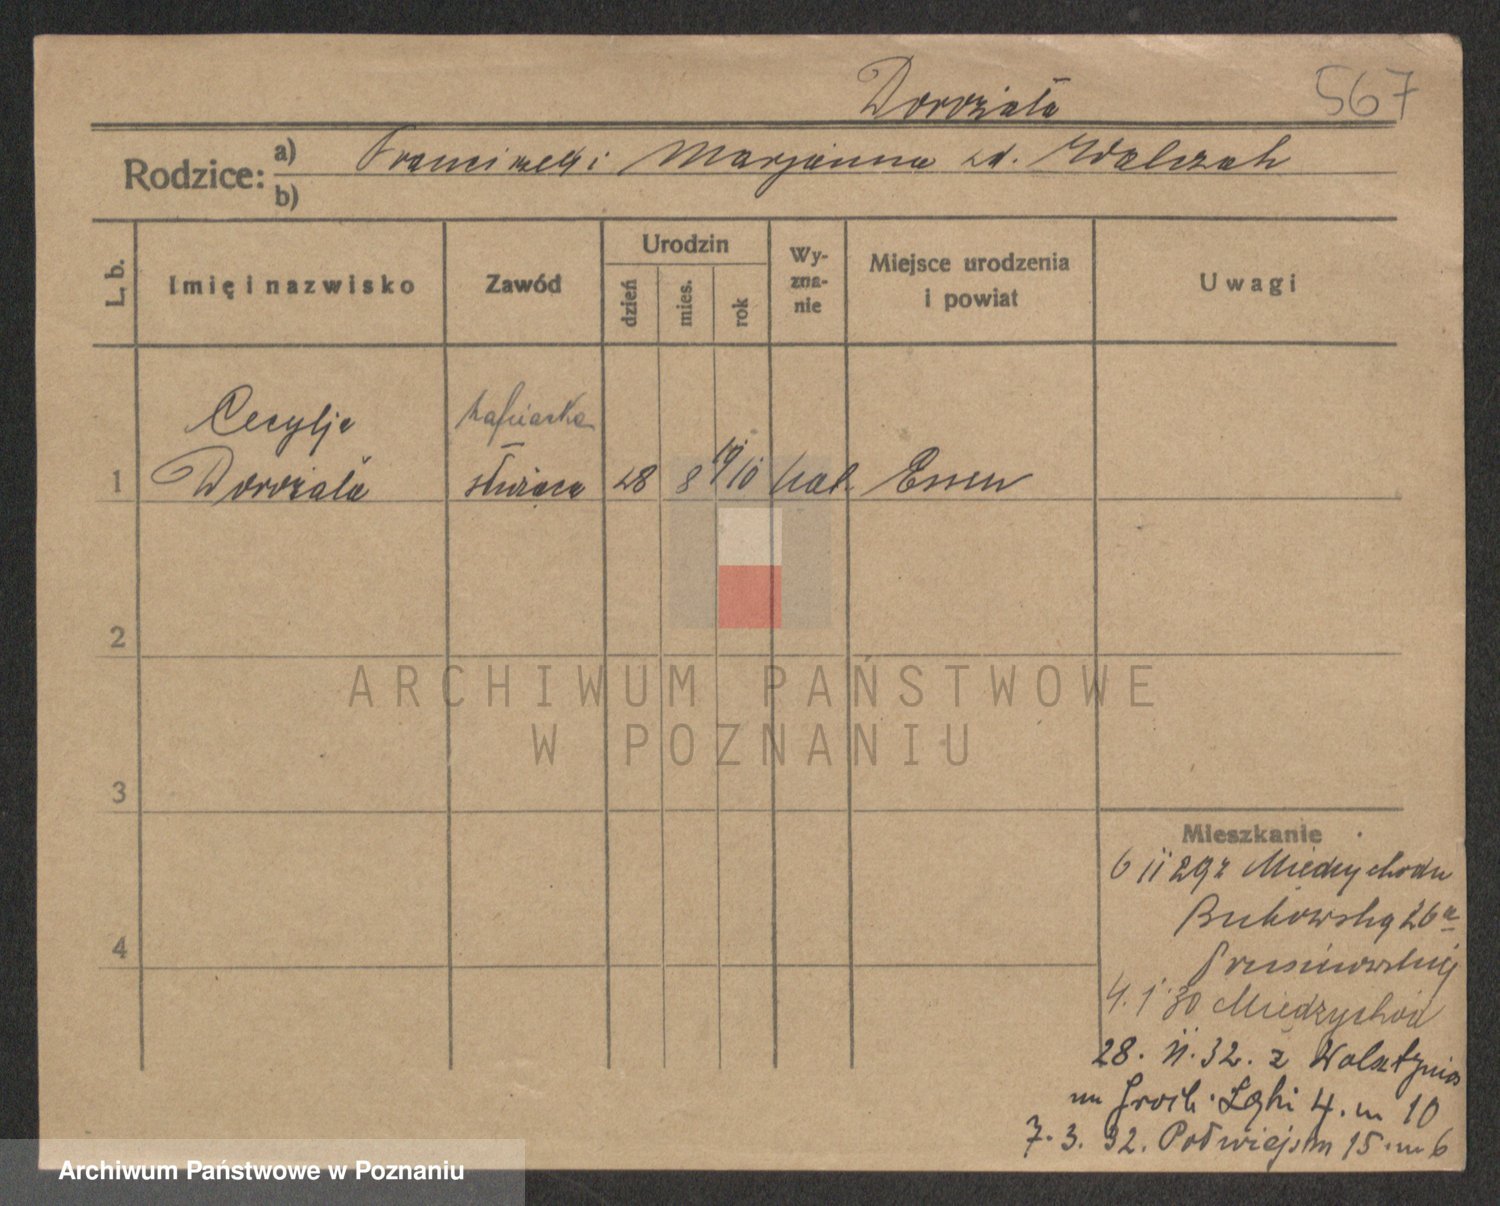 Dorożała
567
Rodzice: a) Franciszek i Marjanna zd. Walczak
b)
L. b.
Imię i nazwisko
Zawód
Urodzin
dzień
mies.
rok
Wy-
zna-
nie
Miejsce urodzenia
i powiat
Uwagi
Cecylja
hafciarka
1 Dorożała służąca 28 8 1910 kat. Essen
2
3
4
Mieszkanie
6 II 29 z Międzychodu
Bukowska 26a
4. 1. 30 Międzychód
28. II. 32. z
Grob. Łąki 4. m 10
7. 3. 32. Półwiejska 15. m 6
ARCHIWUM PAŃSTWOWE
W POZNANIU
Archiwum Państwowe w Poznaniu